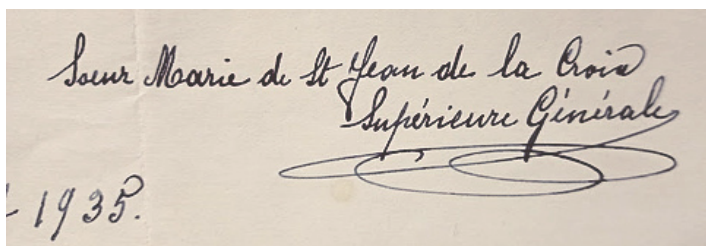 Soeur Marie de St Jean de la Croix
Supérieure Générale
1935.